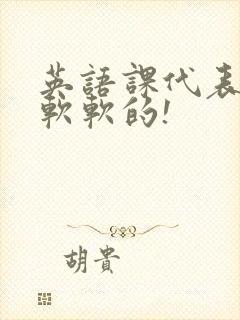 英語課代表
軟軟的!
胡貴